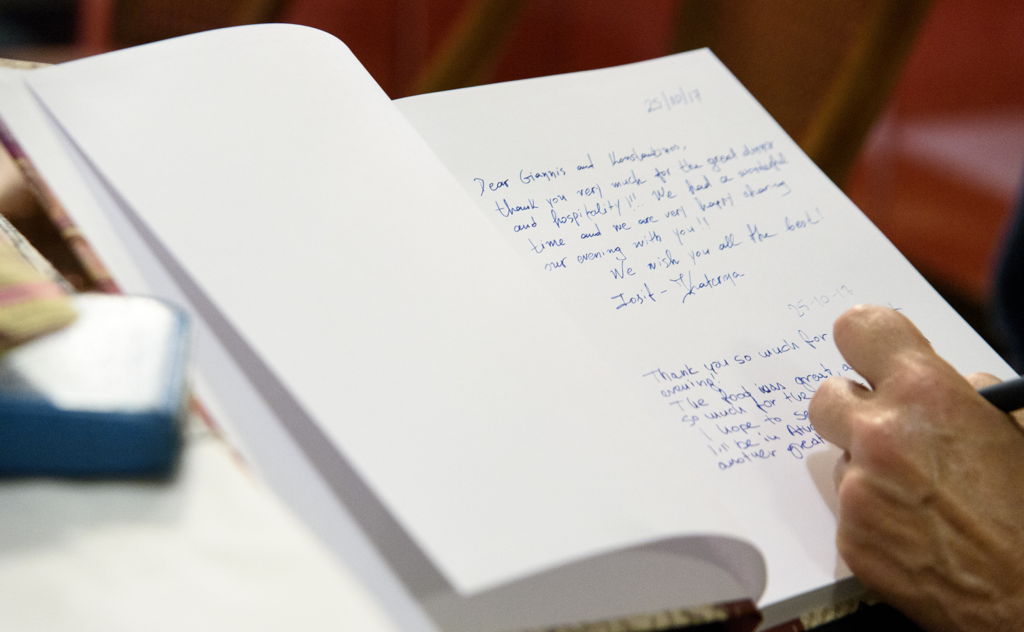 25/10/17
Dear Giannis and Konstantinos,
thank you very much for the great dinner
and hospitality!!! We had a wonderful
time and we are very happy sharing
our evening with you!!
We wish you all the best!
Iosif - Katerina
25-10-17
Thank you so much for
evening!
The food was great, a
so much for the
I hope to se
I'll be in
another great